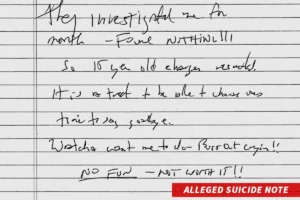 they investigated me for
month — Found NOTHING!!!
So 15 year old charges resulted.
It is a treat to be able to choose ones
time to say goodbye.
Watcha want me to do — Burst out cryin!!
NO FUN — NOT WORTH IT!!
ALLEGED SUICIDE NOTE